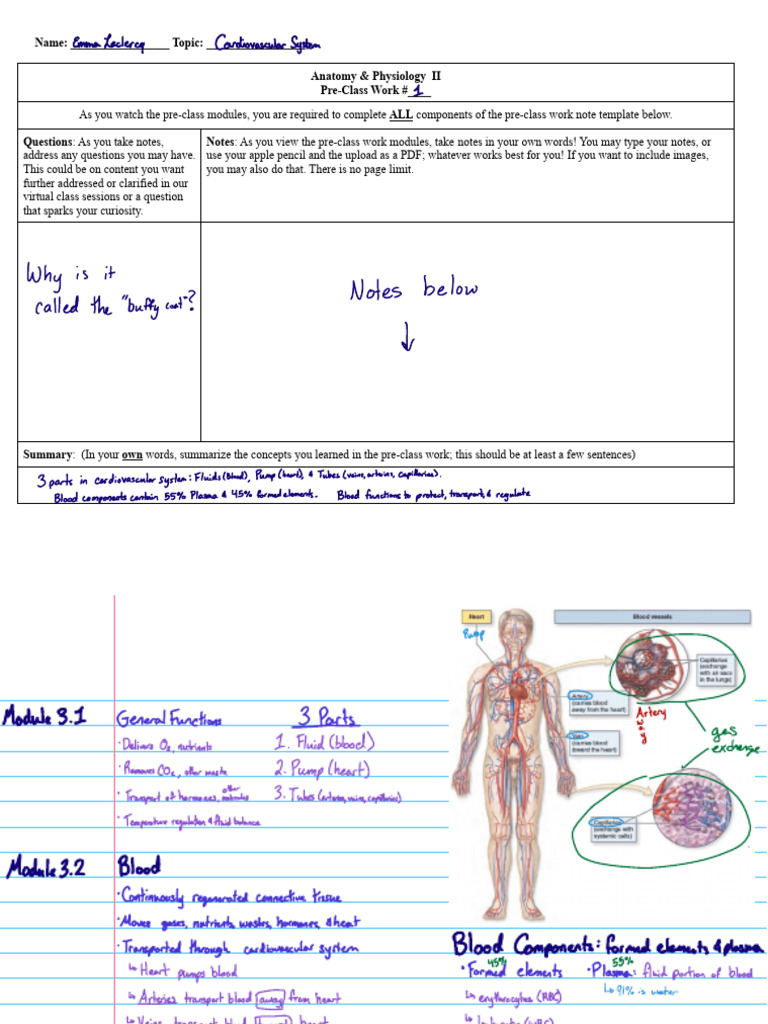 Name: Emma Leclercq Topic: Cardiovascular System
Anatomy & Physiology II
Pre-Class Work # 1
As you watch the pre-class modules, you are required to complete ALL components of the pre-class work note template below.
Questions: As you take notes,
address any questions you may have.
This could be on content you want
further addressed or clarified in our
virtual class sessions or a question
that sparks your curiosity.
Notes: As you view the pre-class work modules, take notes in your own words! You may type your notes, or
use your apple pencil and the upload as a PDF; whatever works best for you! If you want to include images,
you may also do that. There is no page limit.
Why is it
called the "buffy coat"?
Notes below
↓
Summary: (In your own words, summarize the concepts you learned in the pre-class work; this should be at least a few sentences)
3 parts in cardiovascular system: Fluids (Blood), Pump (heart), & Tubes (veins, arteries, capillaries).
Blood components contain 55% Plasma & 45% formed elements. Blood functions to protect, transport, & regulate
Heart
Blood vessels
Pump
Capillaries
(exchange
with air sacs
in the lungs)
Artery
(carries blood
away from the heart)
Artery
away
Vein
(carries blood
toward the heart)
gas
exchange
Capillaries
(exchange with
systemic cells)
Module 3.1
General Functions
3 Parts
· Delivers O2, nutrients
1. Fluid (blood)
· Removes CO2, other waste
2. Pump (heart)
· Transport of hormones, other molecules
3. Tubes (arteries, veins, capillaries)
· Temperature regulation & fluid balance
Module 3.2
Blood
· Continuously regenerated connective tissue
· Moves gases, nutrients, wastes, hormones, & heat
· Transported through cardiovascular system
↳ Heart pumps blood
↳ Arteries transport blood away from heart
↳ Veins transport blood toward heart
Blood Components: formed elements & plasma
45%
55%
· Formed elements
· Plasma: fluid portion of blood
↳ 91% is water
↳ erythrocytes (RBC)
↳ leukocytes (WBC)